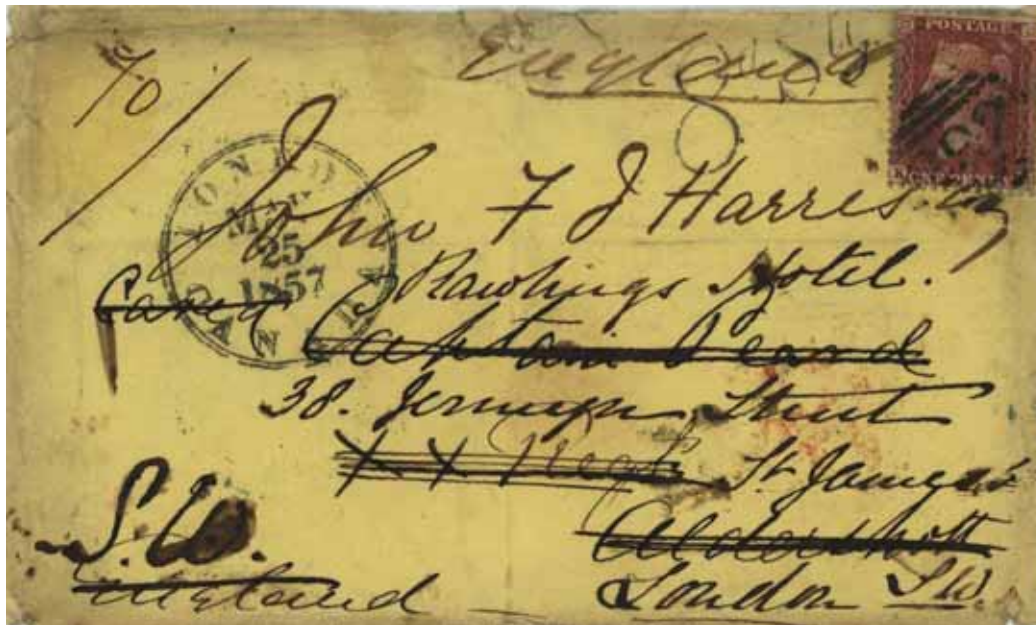 England
POSTAGE
ONE PENNY
LONDON
MAR
25
1857
CANADA
John F J Harris
Rawlings Hotel.
Care of
Captain
38. Jermyn Street
XX Regt
St James's
S.W.
Aldershott
England
London S.W.